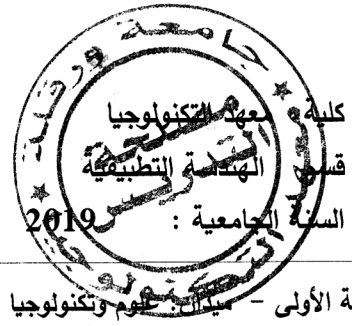 جامعة ورقلة
كلية / معهد التكنولوجيا
قسم الهندسة التطبيقية
السنة الجامعية : 2019
مصلحة التدريس
ة الأولى - ميدان: علوم وتكنولوجيا